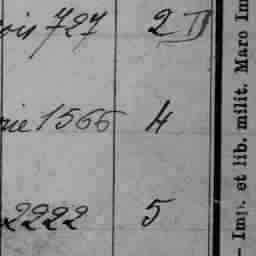 ois 727 2 D
rie 1566 4
2222 5
— Imp. et lib. milit. Marc Im